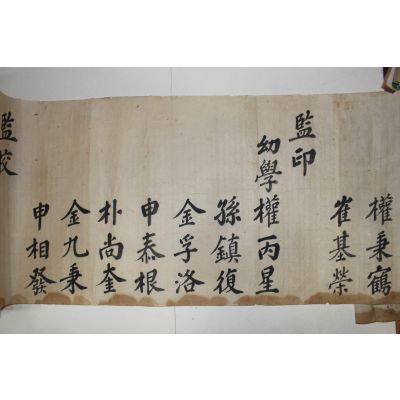 權秉鶴
崔基榮
監印
幼學權丙星
孫鎮復
金孚洛
申泰根
朴尚奎
金九秉
申相發
監校